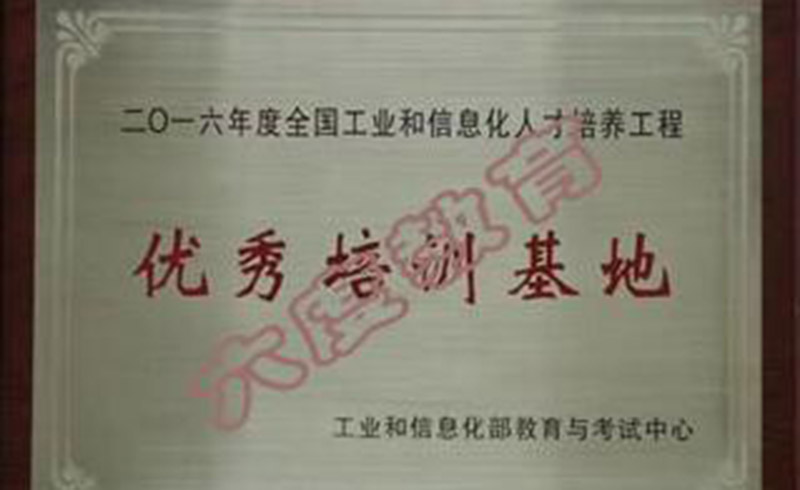 二〇一六年度全国工业和信息化人才培养工程
优秀培训基地
六度教育
工业和信息化部教育与考试中心